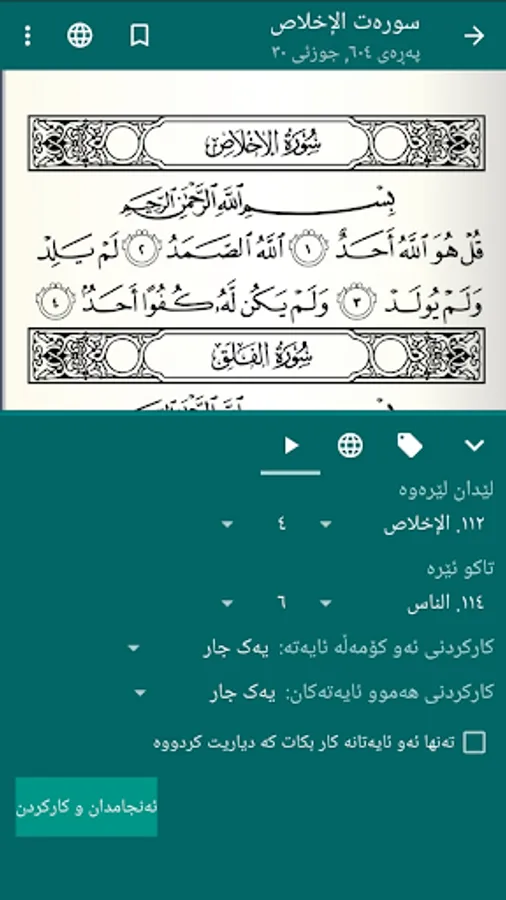 سورەت الإخلاص
پەڕەی ٦٠٤, جوزئی ٣٠
سُورَةُ الإِخْلَاصِ
بِسْمِ اللَّهِ الرَّحْمَٰنِ الرَّحِيمِ
قُلْ هُوَ اللَّهُ أَحَدٌ ١ اللَّهُ الصَّمَدُ ٢ لَمْ يَلِدْ
وَلَمْ يُولَدْ ٣ وَلَمْ يَكُن لَّهُ كُفُوًا أَحَدٌ ٤
سُورَةُ الفَلَقِ
لێدان لێرەوە
١١٢. الإخلاص ٤
تاكو ئێرە
١١٤. الناس ٦
كاركردنی ئەو كۆمەڵە ئایەتە: یەک جار
كاركردنی هەموو ئایەتەكان: یەک جار
تەنها ئەو ئایەتانە كار بكات كە دیاریت كردووە
ئەنجامدان و كاركردن